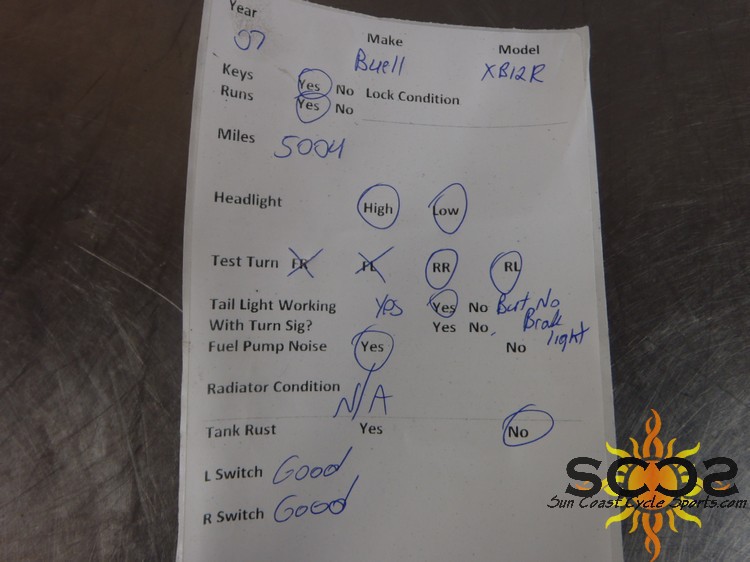 Year Make Model
07 Buell XB12R
Keys Yes No Lock Condition
Runs Yes No
Miles 5004
Headlight High Low
Test Turn FR FL RR RL
Tail Light Working Yes Yes No But No
With Turn Sig? Yes No Brak light
Fuel Pump Noise Yes No
Radiator Condition
N/A
Tank Rust Yes No
L Switch Good
R Switch Good
SCCS
Sun Coast Cycle Sports.com